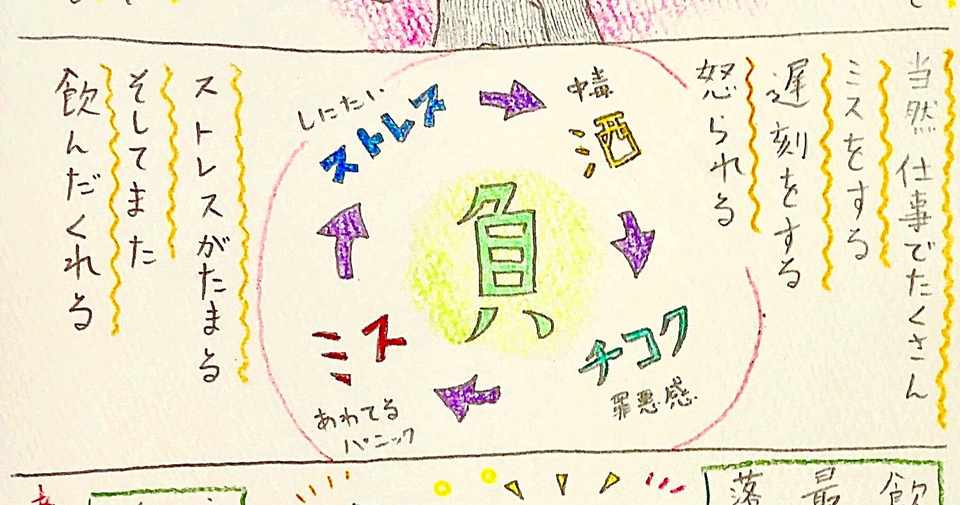 当然仕事でたくさん
ミスをする
遅刻をする
怒られる
中毒
酒
しにたい
ストレス
負
チコク
罪悪感
ミス
あわてる
パニック
ストレスがたまる
そしてまた
飲んだくれる
飲
最
落